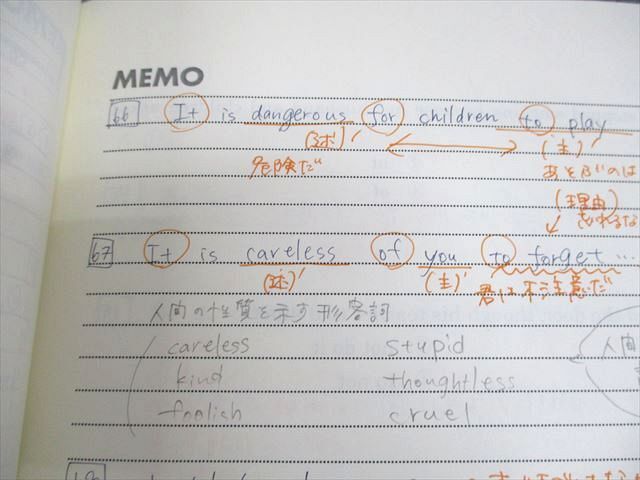 MEMO
66 It is dangerous for children to play
(述)' (主)'
危険だ" あそぶのは
(理由)
67 It is careless of you to forget ...
(述)' (主)' 君は不注意だ
人間の性質を示す形容詞
careless stupid 人間
kind thoughtless
foolish cruel